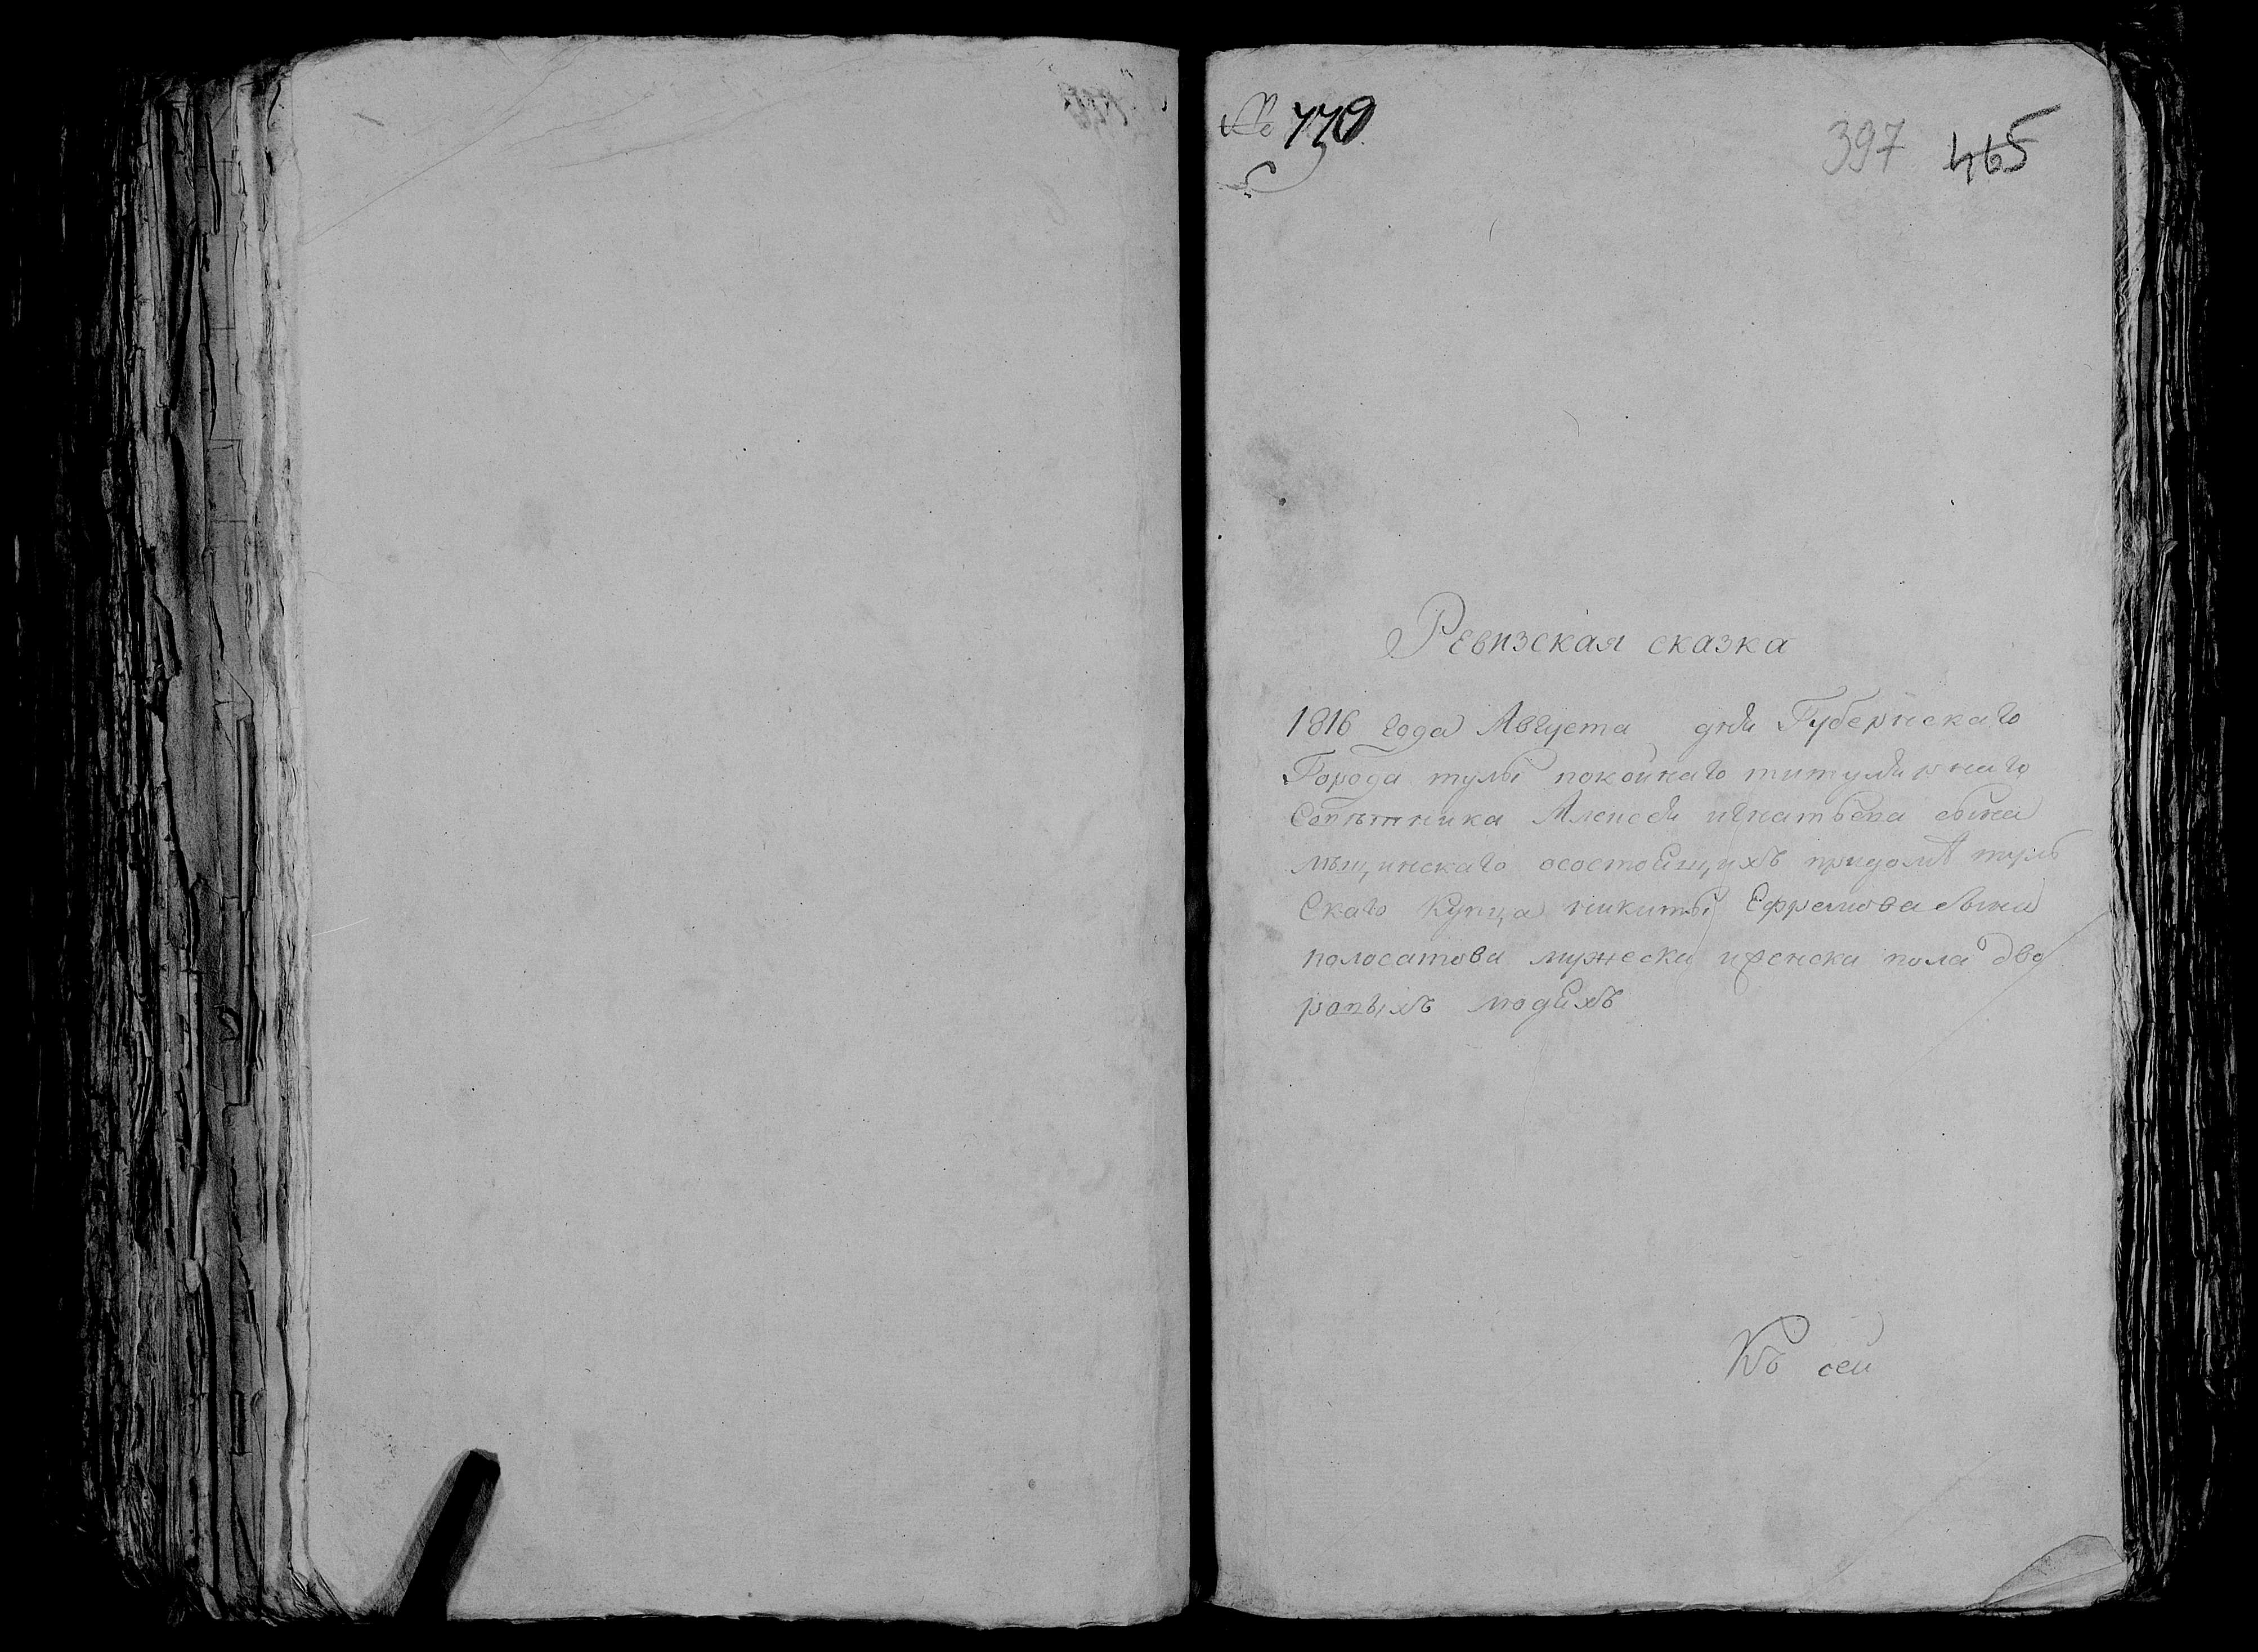 № 770
397 465
Ревизская сказка
1816 года Августа дня Губернскаго
Города тулы покойнаго титулярнаго
Советника Алексея игнатьева сына
мещинскаго осостоящихъ придоме туль
Скаго купца никиты Ефремова сына
полосатова мужеска иженска пола дво
ровыхъ людяхъ
Къ сей